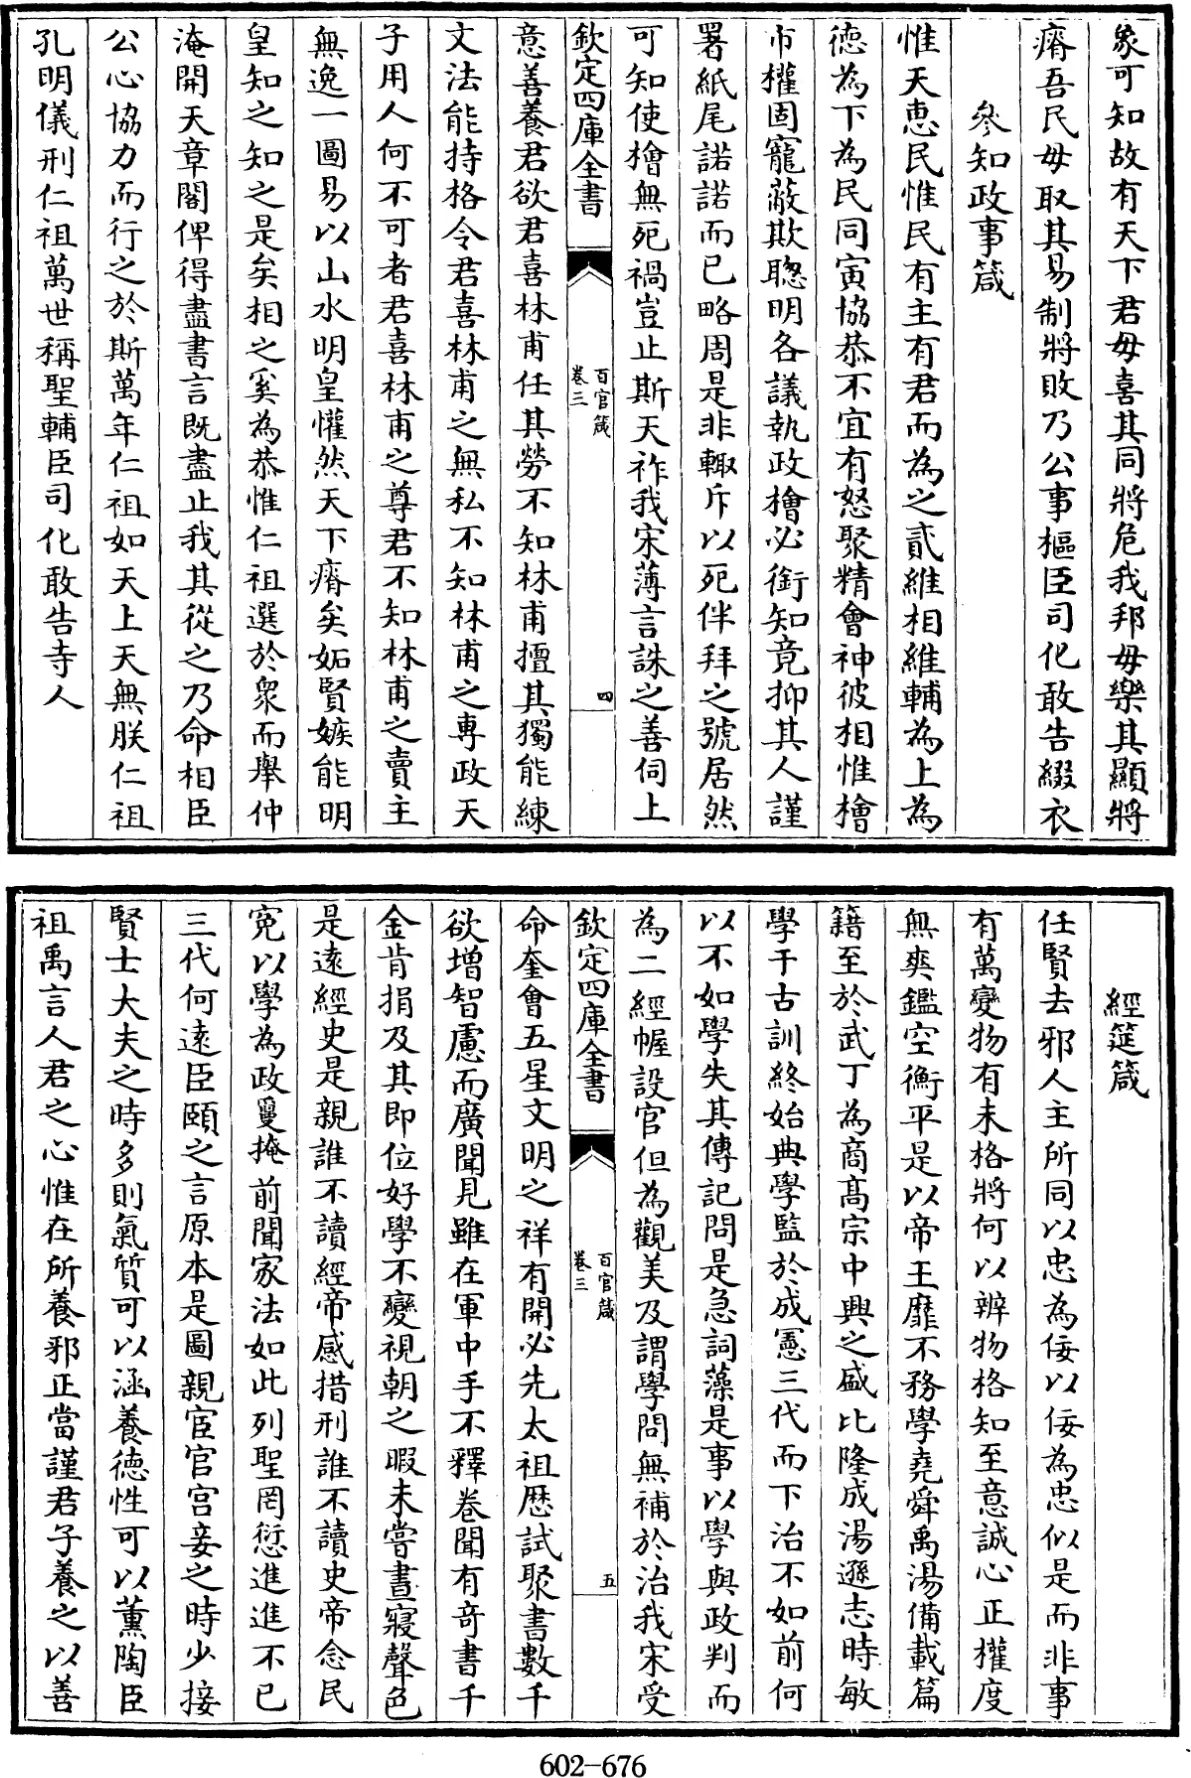 象可知故有天下君毋喜其同將危我邦毋樂其顯將
瘠吾民毋取其易制將敗乃公事樞臣司化敢告綴衣
參知政事箴
惟天恵民惟民有主有君而為之貳維相維輔為上為
徳為下為民同寅協恭不宜有怒聚精會神彼相惟檜
市權固寵蔽欺聰明各議執政檜必銜知竟抑其人謹
署紙尾諾諾而已略周是非輙斥以死伴拜之號居然
可知使檜無死禍豈止斯天祚我宋薄言誅之善伺上
欽定四庫全書
百官箴
卷三
四
意善養君欲君喜林甫任其勞不知林甫擅其獨能練
文法能持格令君喜林甫之無私不知林甫之專政天
子用人何不可者君喜林甫之尊君不知林甫之賣主
無逸一圖易以山水明皇懽然天下瘠矣妬賢嫉能明
皇知之知之是矣相之奚為恭惟仁祖選於衆而舉仲
淹開天章閣俾得盡書言既盡止我其從之乃命相臣
公心協力而行之於斯萬年仁祖如天上天無朕仁祖
孔明儀刑仁祖萬世稱聖輔臣司化敢告寺人
經筵箴
任賢去邪人主所同以忠為佞以佞為忠似是而非事
有萬變物有未格將何以辨物格知至意誠心正權度
無爽鑑空衡平是以帝王靡不務學堯舜禹湯備載篇
籍至於武丁為商髙宗中興之盛比隆成湯遜志時敏
學于古訓終始典學監於成憲三代而下治不如前何
以不如學失其傳記問是急詞藻是事以學與政判而
為二經幄設官但為觀美及謂學問無補於治我宋受
欽定四庫全書
百官箴
卷三
五
命奎會五星文明之祥有開必先太祖歴試聚書數千
欲增智慮而廣聞見雖在軍中手不釋卷聞有奇書千
金肯捐及其即位好學不變視朝之暇未嘗晝寢聲色
是逺經史是親誰不讀經帝感措刑誰不讀史帝念民
寃以學為政敻掩前聞家法如此列聖罔愆進進不已
三代何逺臣頤之言原本是圖親宦官宫妾之時少接
賢士大夫之時多則氣質可以涵養德性可以薫陶臣
祖禹言人君之心惟在所養邪正當謹君子養之以善
602-676